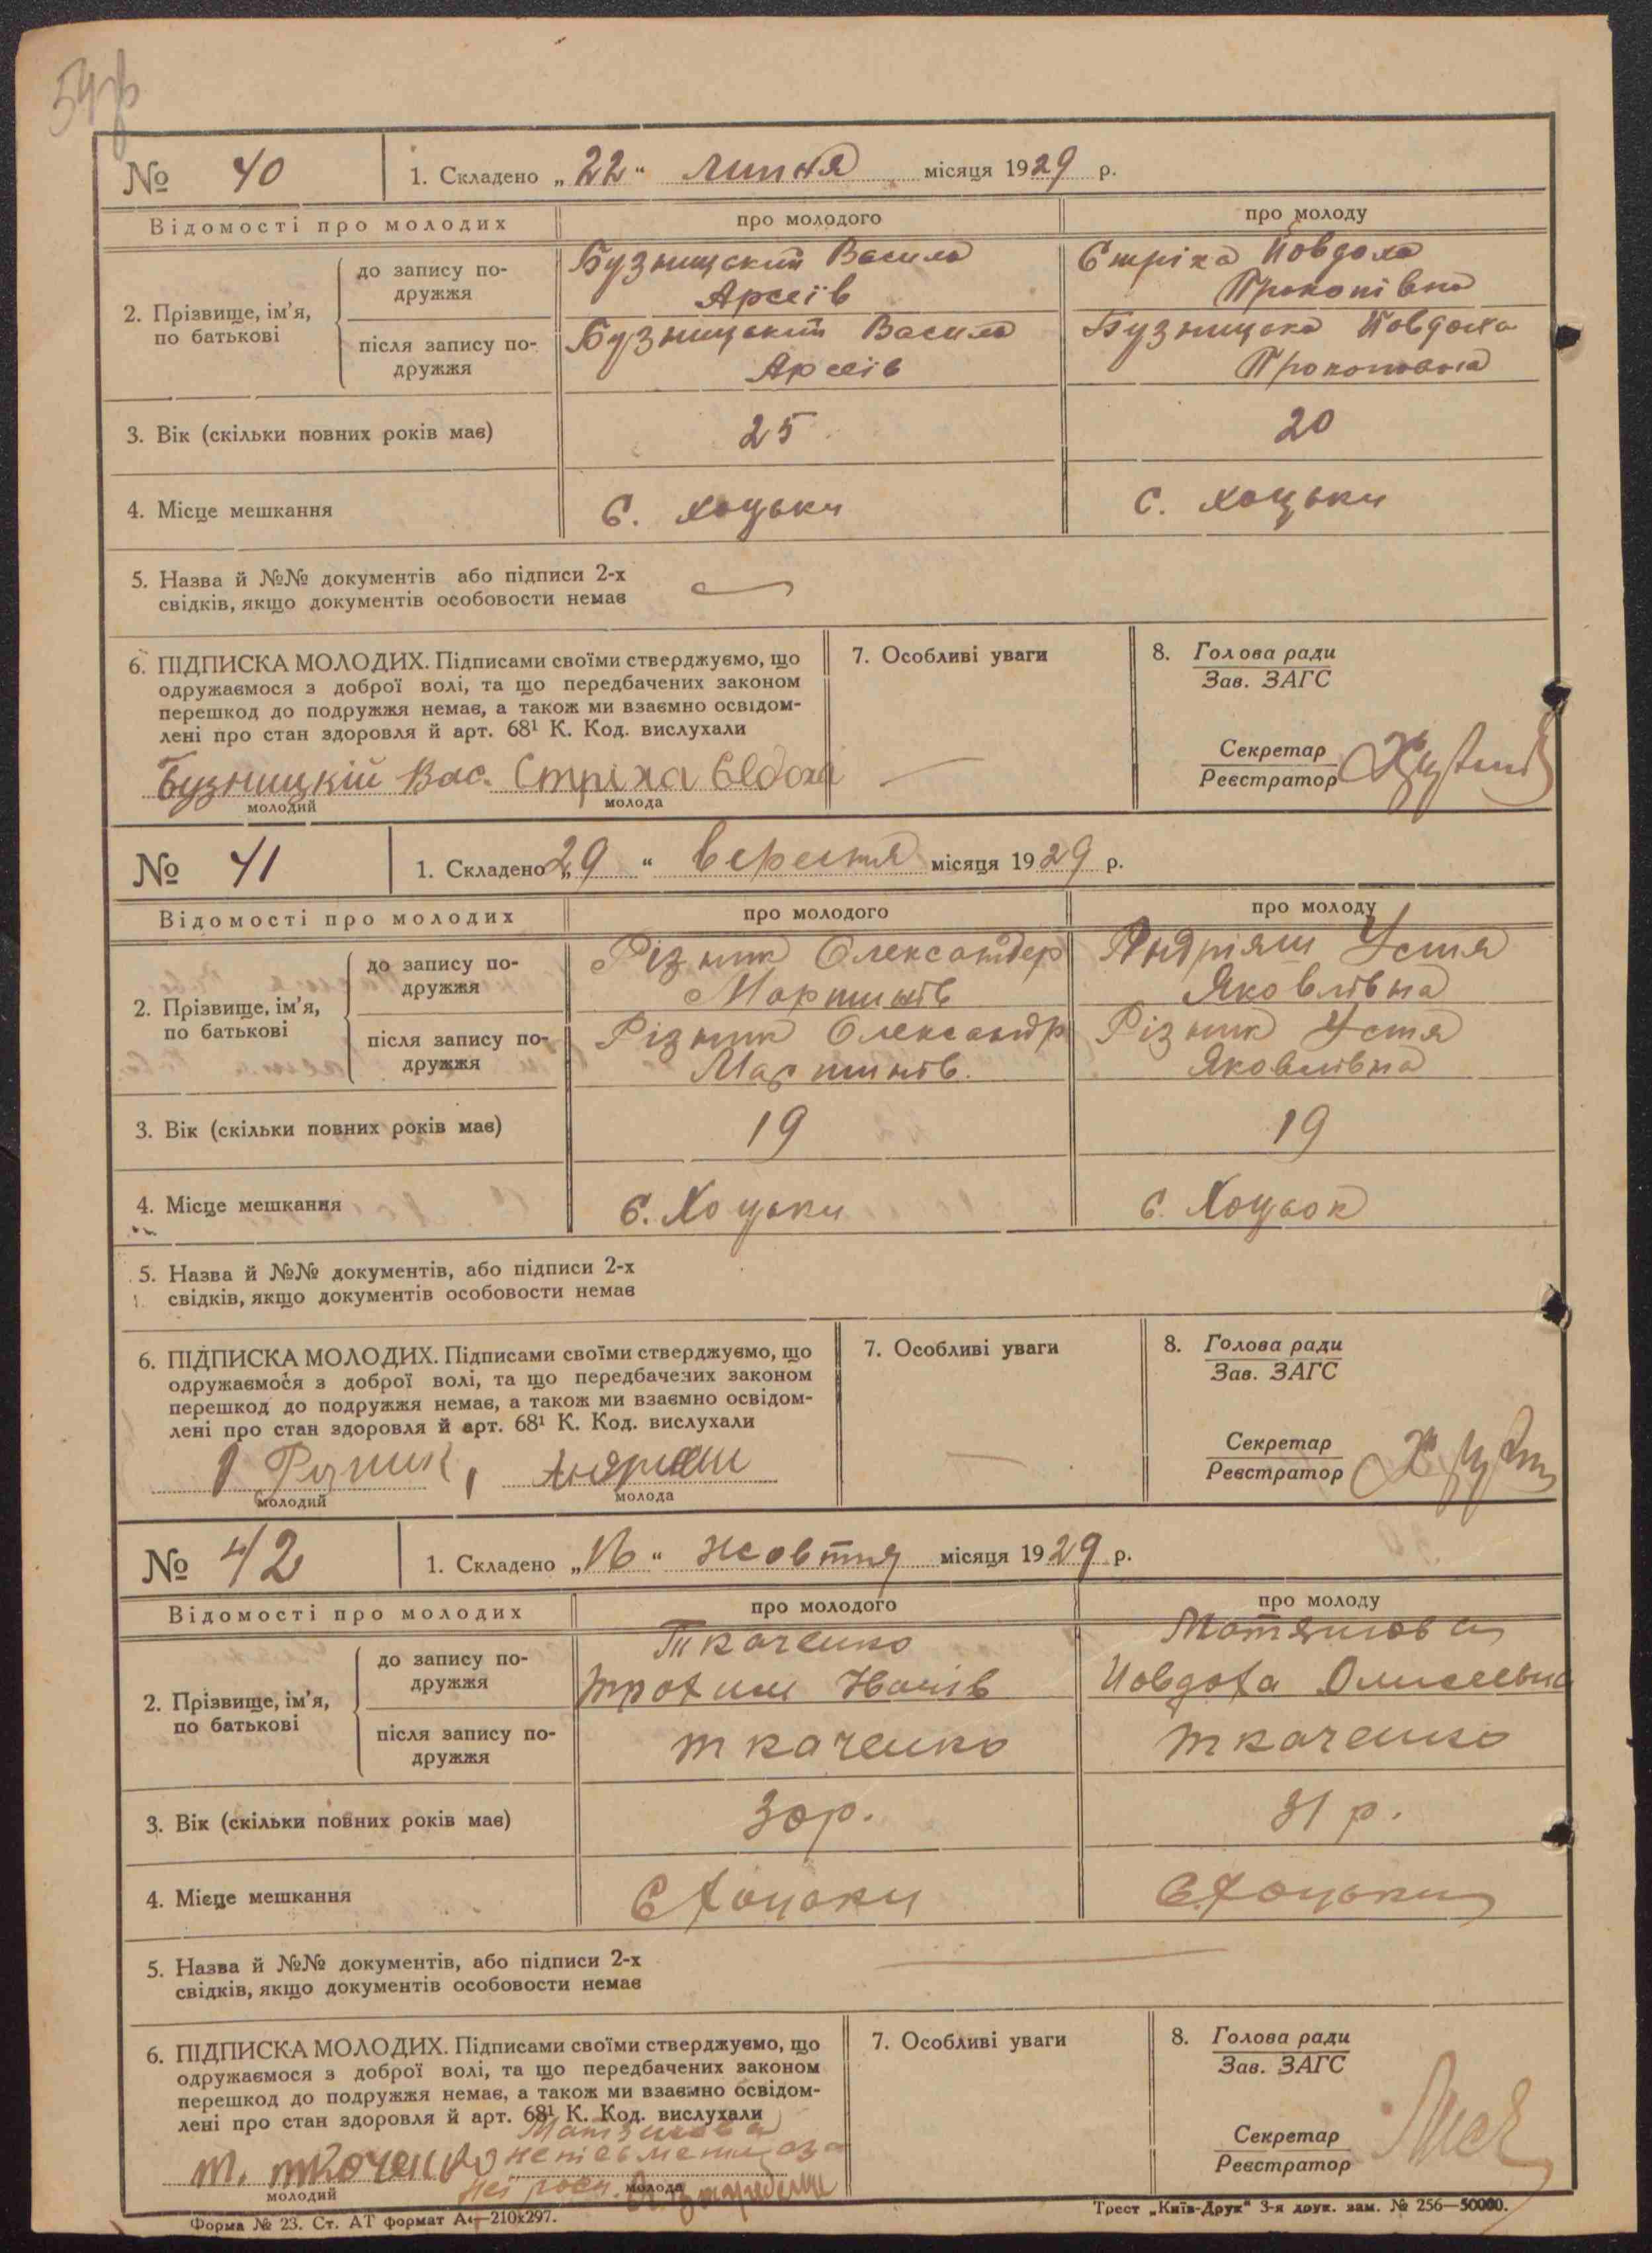 № 40 1. Складено „22“ липня місяця 1929 р.
Відомості про молодих про молодого про молоду
2. Прізвище, ім’я, по батькові
до запису подружжя
Бузницький Василь
Арсеїв
Стріха Йовдоха
Прокопівна
після запису подружжя
Бузницький Василь
Арсеїв
Бузницька Йовдоха
Прокоповна
3. Вік (скільки повних років має) 25 20
4. Місце мешкання С. Хоцьки С. Хоцьки
5. Назва й №№ документів або підписи 2-х
свідків, якщо документів особовости немає
6. ПІДПИСКА МОЛОДИХ. Підписами своїми стверджуємо, що
одружаємося з доброї волі, та що передбачених законом
перешкод до подружжя немає, а також ми взаємно освідом-
лені про стан здоровля й арт. 68¹ К. Код. вислухали
Бузницкій Вас. Стріха Євдоха
молодий молода
7. Особливі уваги
8. Голова ради
Зав. ЗАГС
Секретар
Реєстратор
№ 41 1. Складено „29“ вересня місяця 1929 р.
Відомості про молодих про молодого про молоду
2. Прізвище, ім’я, по батькові
до запису подружжя
Різник Олександер
Мартинів
Андріяш Устя
Яковлівна
після запису подружжя
Різник Олександр
Мартинів.
Різник Устя
Яковлівна
3. Вік (скільки повних років має) 19 19
4. Місце мешкання С. Хоцьки С. Хоцьок
5. Назва й №№ документів, або підписи 2-х
свідків, якщо документів особовости немає
6. ПІДПИСКА МОЛОДИХ. Підписами своїми стверджуємо, що
одружаємося з доброї волі, та що передбачених законом
перешкод до подружжя немає, а також ми взаємно освідом-
лені про стан здоровля й арт. 68¹ К. Код. вислухали
Андрияш
молодий молода
7. Особливі уваги
8. Голова ради
Зав. ЗАГС
Секретар
Реєстратор
№ 42 1. Складено „16“ жовтня місяця 1929 р.
Відомості про молодих про молодого про молоду
2. Прізвище, ім’я, по батькові
до запису подружжя
Ткаченко
Трохим Іванів
Йовдоха
після запису подружжя
Ткаченко
Ткаченко
3. Вік (скільки повних років має) 30р. 31 р.
4. Місце мешкання С Хоцьки С. Хоцьки
5. Назва й №№ документів, або підписи 2-х
свідків, якщо документів особовости немає
6. ПІДПИСКА МОЛОДИХ. Підписами своїми стверджуємо, що
одружаємося з доброї волі, та що передбачених законом
перешкод до подружжя немає, а також ми взаємно освідом-
лені про стан здоровля й арт. 68¹ К. Код. вислухали
Т. Ткоченко неписьменна за
неї росп.
молодий молода
7. Особливі уваги
8. Голова ради
Зав. ЗАГС
Секретар
Реєстратор
Форма № 23. Ст. АТ формат А₄—210х297.
Трест „Київ-Друк“ 3-я друк. зам. № 256—50000.